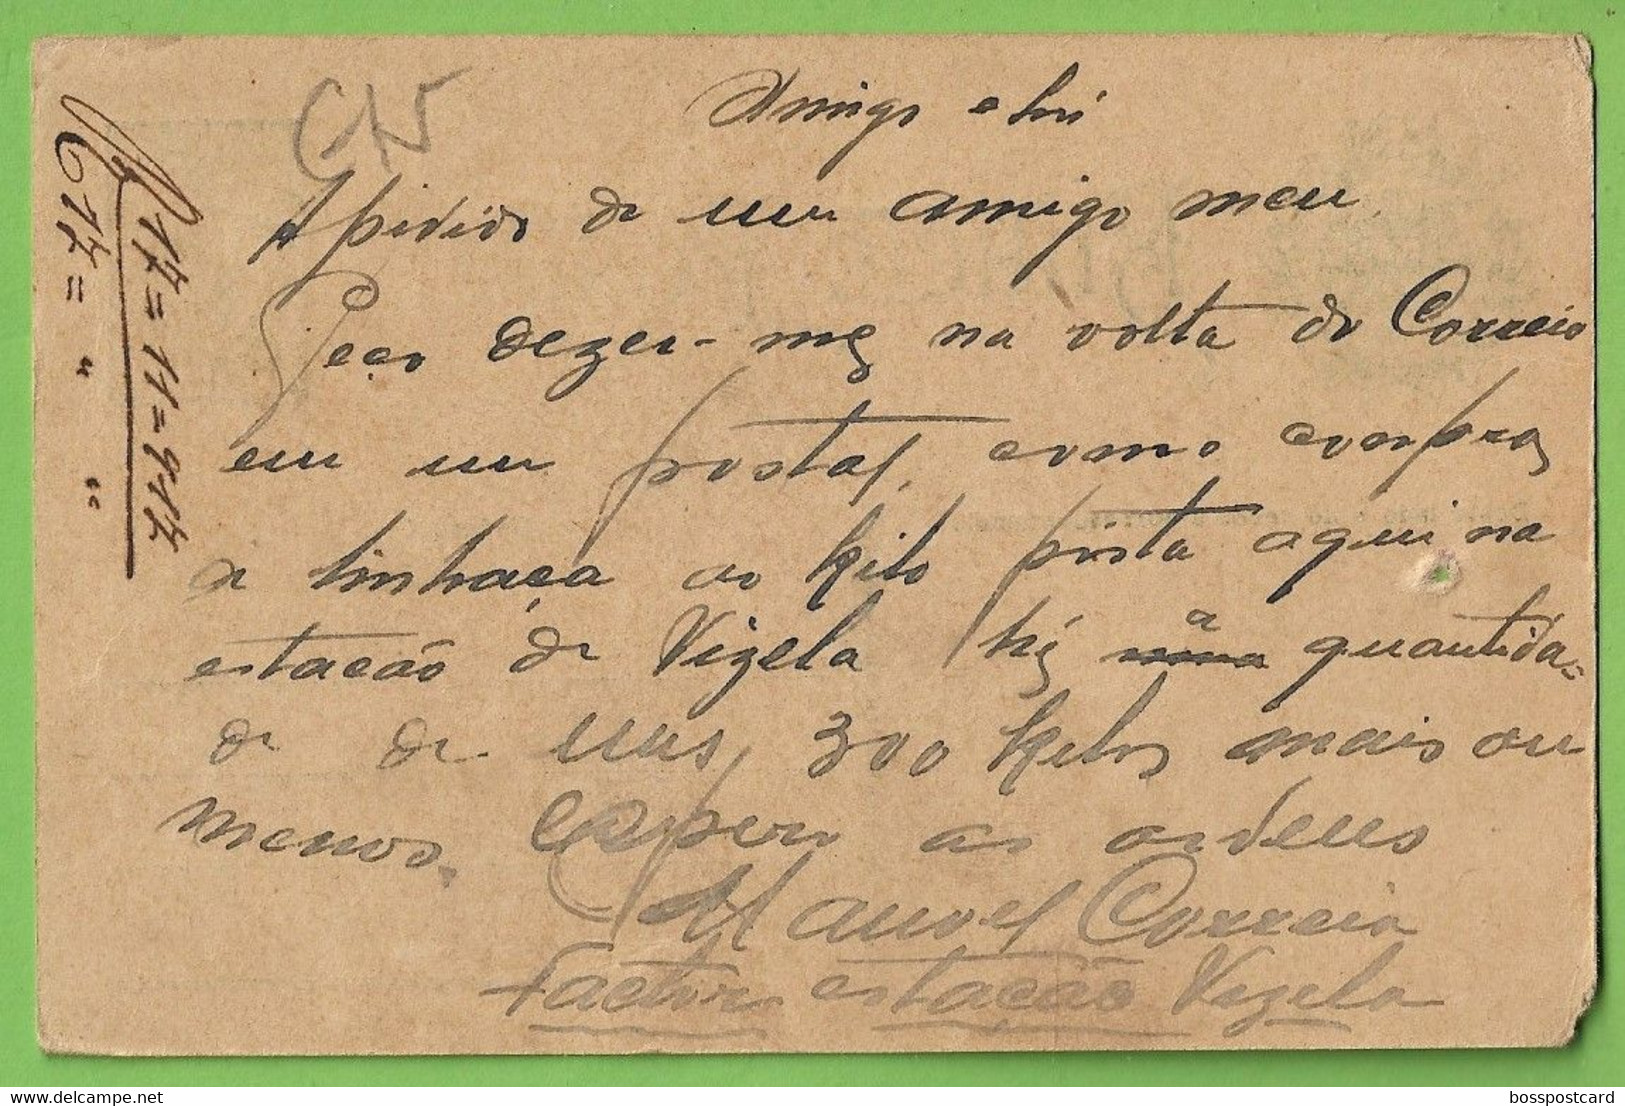 GN
Amigo e
A pidido de um amigo meu
Peço dezer-me na volta do Correio
em um postal, como compra
a linhaça ao kilo posta aqui na
estacão de Vizela há a quantida-
de de uns 300 kilos mais ou
menos. Espero as ordens
Manoel Correia
Factor estação Vizela
17=11=917
617= " "
bosspostcard